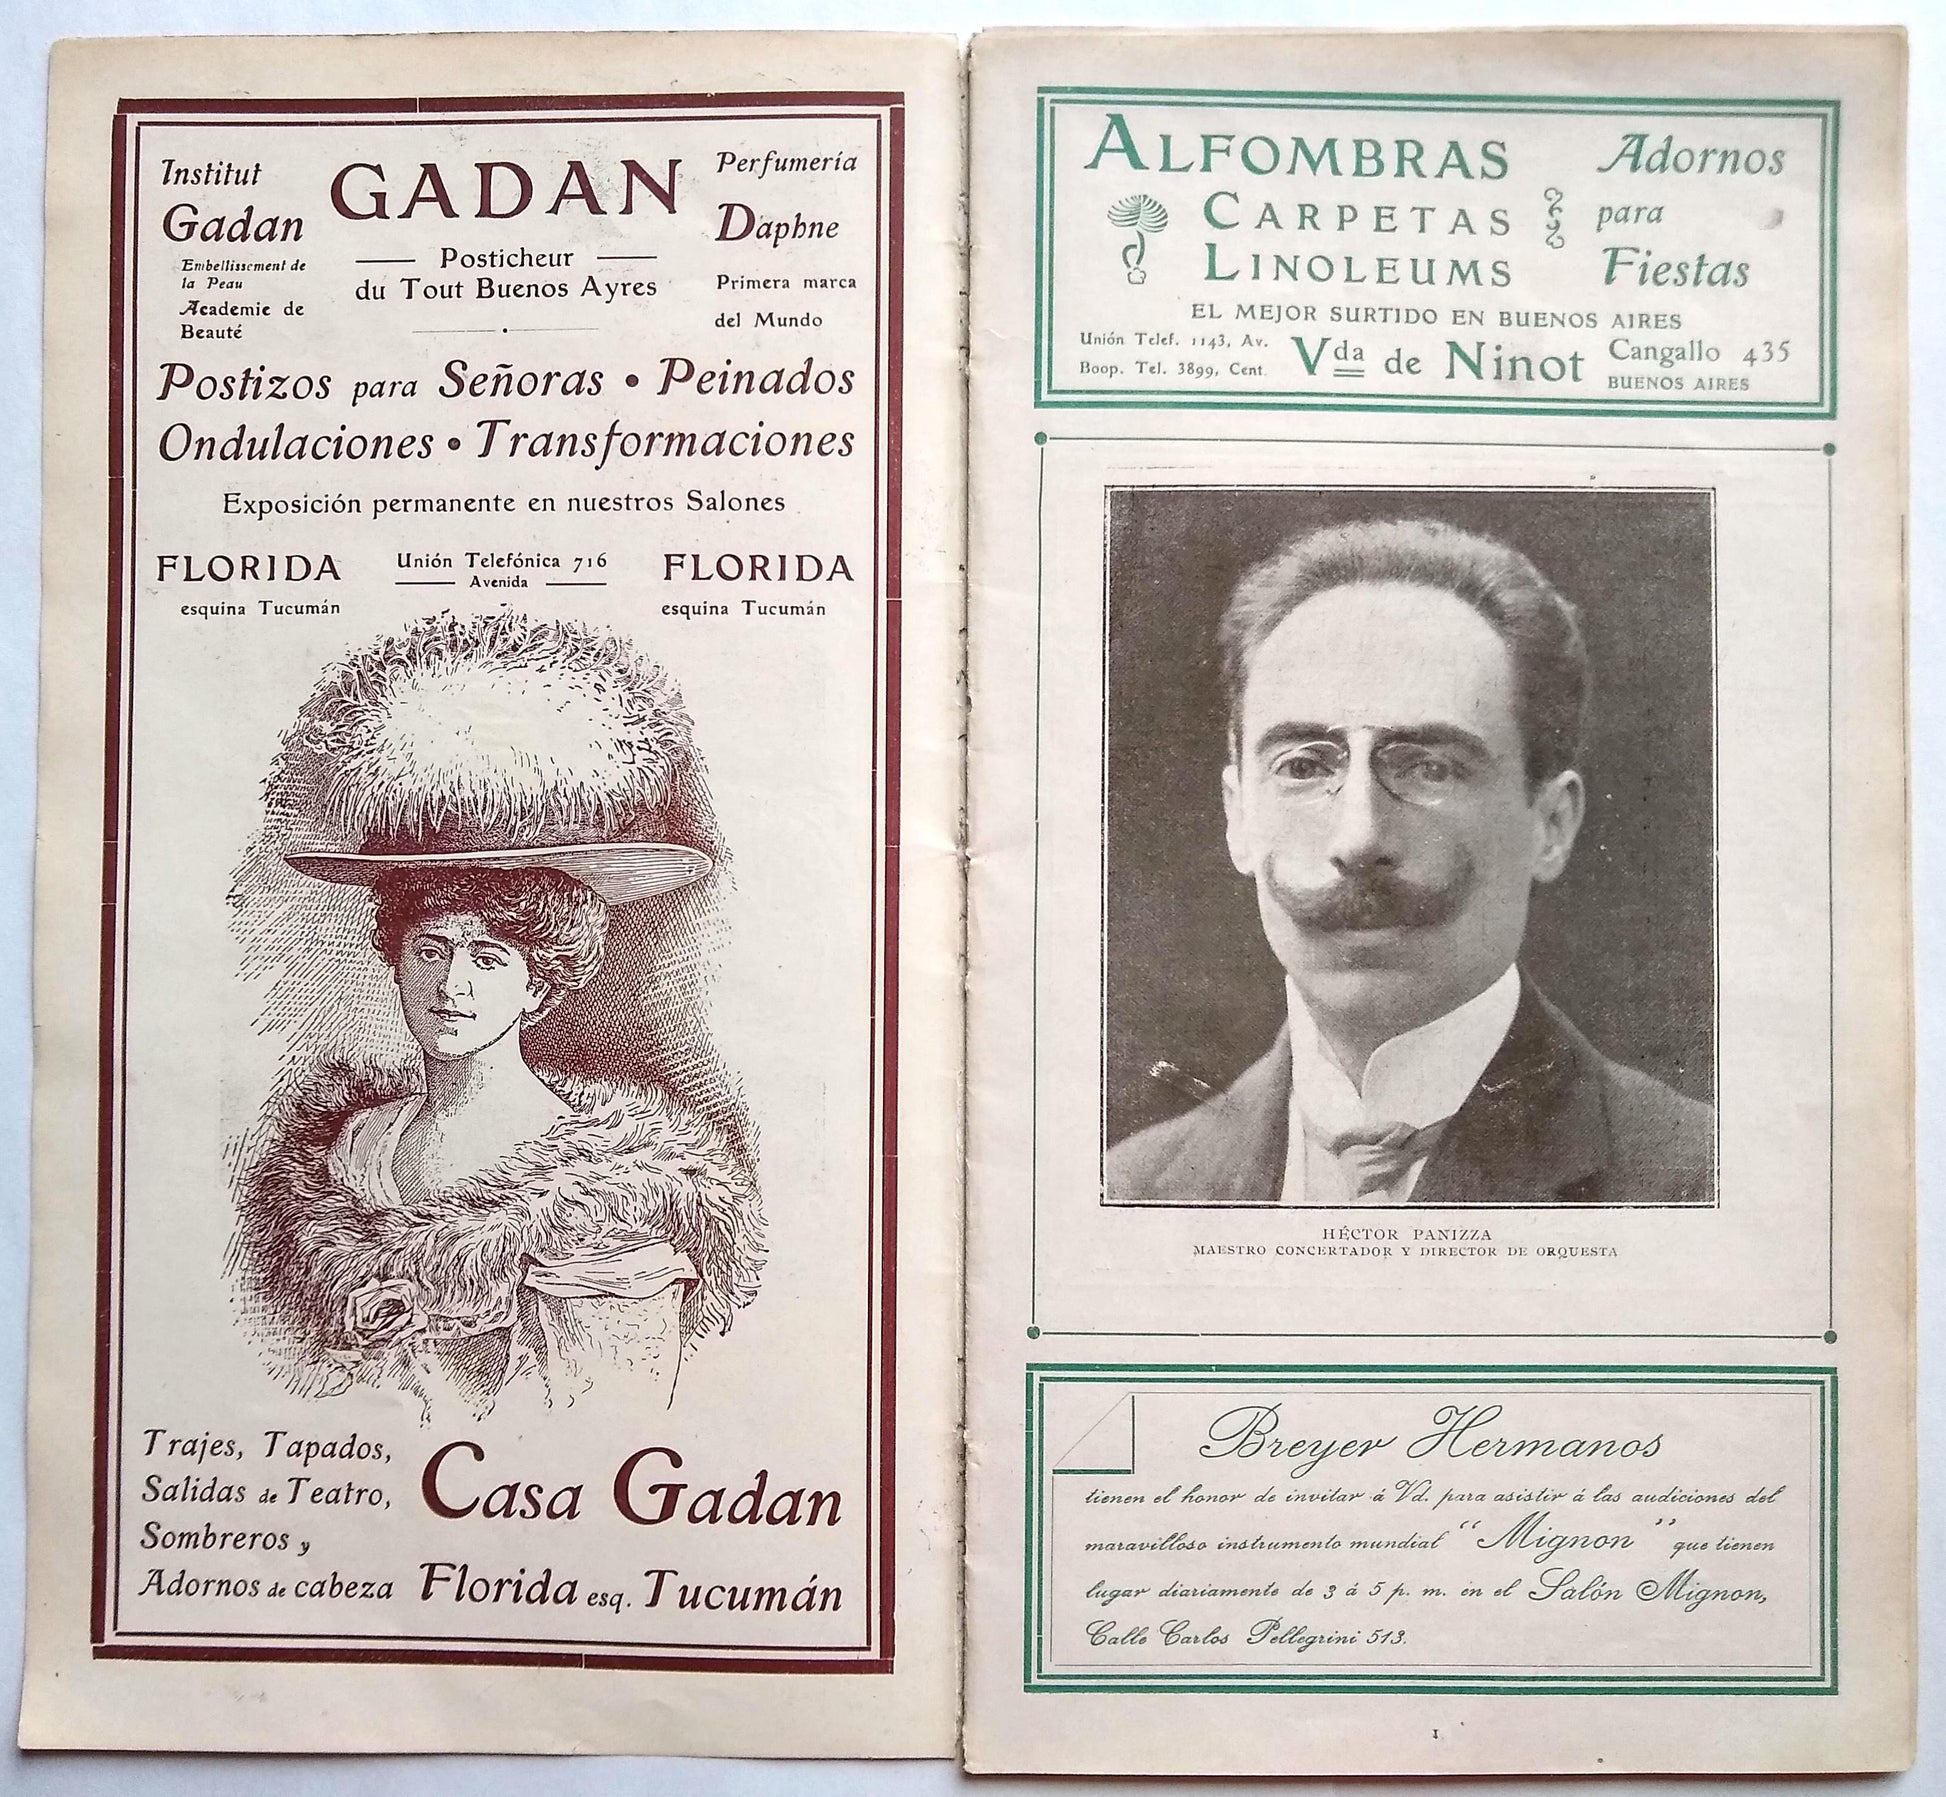 Institut
Gadan
Embellissement de
la Peau
Academie de
Beauté
GADAN
Posticheur
du Tout Buenos Ayres
Perfumería
Daphne
Primera marca
del Mundo
Postizos para Señoras • Peinados
Ondulaciones • Transformaciones
Exposición permanente en nuestros Salones
FLORIDA
esquina Tucumán
Unión Telefónica 716
Avenida
FLORIDA
esquina Tucumán
Trajes, Tapados,
Salidas de Teatro,
Sombreros y
Adornos de cabeza
Casa Gadan
Florida esq. Tucumán
ALFOMBRAS
CARPETAS
LINOLEUMS
Adornos
para
Fiestas
EL MEJOR SURTIDO EN BUENOS AIRES
Unión Telef. 1143, Av.
Boop. Tel. 3899, Cent.
Vda de Ninot
Cangallo 435
BUENOS AIRES
HÉCTOR PANIZZA
MAESTRO CONCERTADOR Y DIRECTOR DE ORQUESTA
Breyer Hermanos
tienen el honor de invitar á Vd. para asistir á las audiciones del
maravilloso instrumento mundial "Mignon" que tienen
lugar diariamente de 3 á 5 p. m. en el Salón Mignon,
Calle Carlos Pellegrini 513.
1